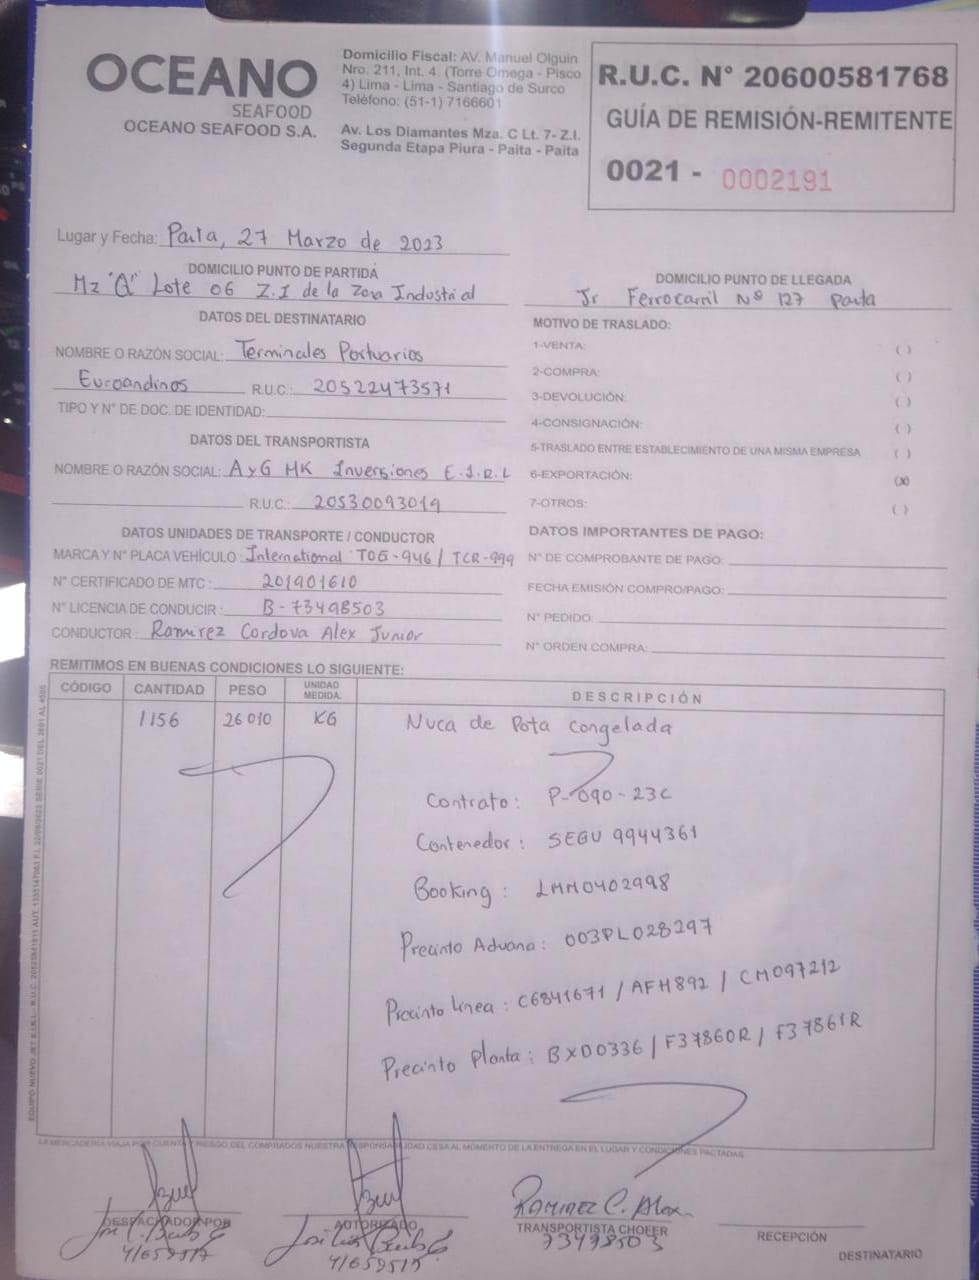 OCEANO
SEAFOOD
OCEANO SEAFOOD S.A.
Domicilio Fiscal: AV. Manuel Olguin
Nro. 211, Int. 4. (Torre Omega - Pisco
4) Lima - Lima - Santiago de Surco
Teléfono: (51-1) 7166601
Av. Los Diamantes Mza. C Lt. 7- Z.I.
Segunda Etapa Piura - Paita - Paita
R.U.C. N° 20600581768
GUÍA DE REMISIÓN-REMITENTE
0021 - 0002191
Lugar y Fecha: Paita, 27 Marzo de 2023
DOMICILIO PUNTO DE PARTIDA
Mz "Q" Lote 06 Z.I de la Zona Industrial
DOMICILIO PUNTO DE LLEGADA
Jr Ferrocarril Nº 127 Paita
DATOS DEL DESTINATARIO
NOMBRE O RAZÓN SOCIAL: Terminales Portuarios
Euroandinos R.U.C.: 20522473571
TIPO Y N° DE DOC. DE IDENTIDAD:
DATOS DEL TRANSPORTISTA
NOMBRE O RAZÓN SOCIAL: AyG MK Inversiones E.I.R.L
R.U.C.: 20530093019
DATOS UNIDADES DE TRANSPORTE / CONDUCTOR
MARCA Y N° PLACA VEHÍCULO: International / TCR-999
N° CERTIFICADO DE MTC: 201901610
N° LICENCIA DE CONDUCIR: B-73498503
CONDUCTOR: Ramirez Cordova Alex Junior
MOTIVO DE TRASLADO:
1-VENTA: ( )
2-COMPRA: ( )
3-DEVOLUCIÓN: ( )
4-CONSIGNACIÓN: ( )
5-TRASLADO ENTRE ESTABLECIMIENTO DE UNA MISMA EMPRESA ( )
6-EXPORTACIÓN: (x)
7-OTROS: ( )
DATOS IMPORTANTES DE PAGO:
N° DE COMPROBANTE DE PAGO:
FECHA EMISIÓN COMPRO/PAGO:
N° PEDIDO:
N° ORDEN COMPRA:
REMITIMOS EN BUENAS CONDICIONES LO SIGUIENTE:
CÓDIGO CANTIDAD PESO UNIDAD MEDIDA DESCRIPCIÓN
1156 26010 KG Nuca de Pota Congelada
Contrato: P-090-23C
Contenedor: SEGU 9944361
Booking: LMM0402998
Precinto Aduana: 003PL028297
Precinto Linea: C6841671 / AFH892 / CM097212
Precinto Planta: BXD0336 / F37860R / F37861R
LA MERCADERIA VIAJA POR CUENTA Y RIESGO DEL COMPRADOS NUESTRA RESPONSABILIDAD CESA AL MOMENTO DE LA ENTREGA EN EL LUGAR Y CONDICIONES PACTADAS
DESPACHADO POR
41659517
AUTORIZADO
41659517
RAMIREZ C. Alex
TRANSPORTISTA CHOFER
73498503
RECEPCIÓN
DESTINATARIO